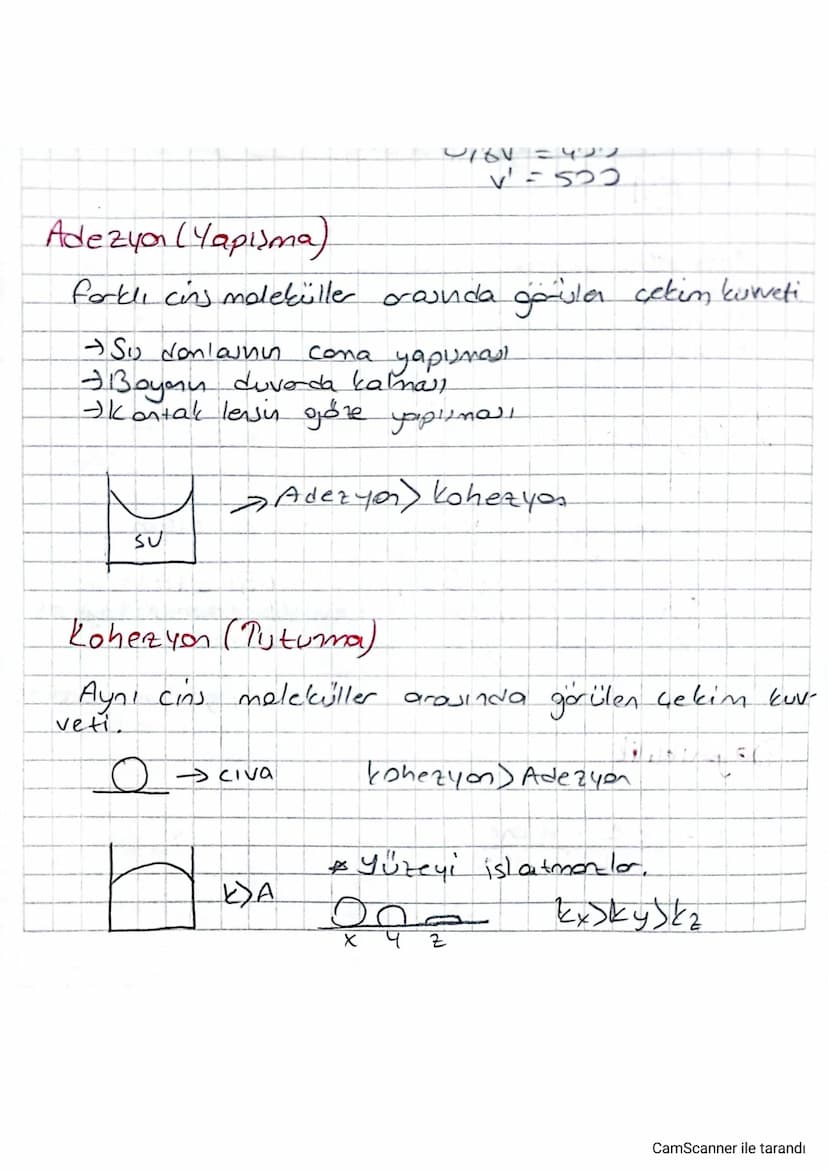 V' = 500
Adezyon (Yapışma)
farklı cins moleküller arasında görülen çekim kuvveti
→ Su damlasının cama yapışması
→ Boyanın duvarda kalması
→ Kontak lensin göze yapışması
→ Adezyon > kohezyon
SU
Kohezyon (Tutunma)
Aynı cins moleküller arasında görülen çekim kuv-
veti.
→ cıva kohezyon > Adezyon
* Yüzeyi ıslatmazlar.
k > A
kx > ky > kz
x y z
CamScanner ile tarandı